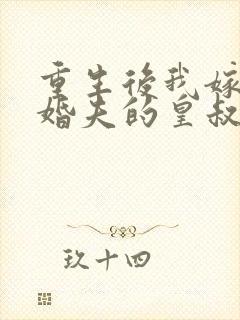 重生後我嫁
婚夫的皇叔
玖十四